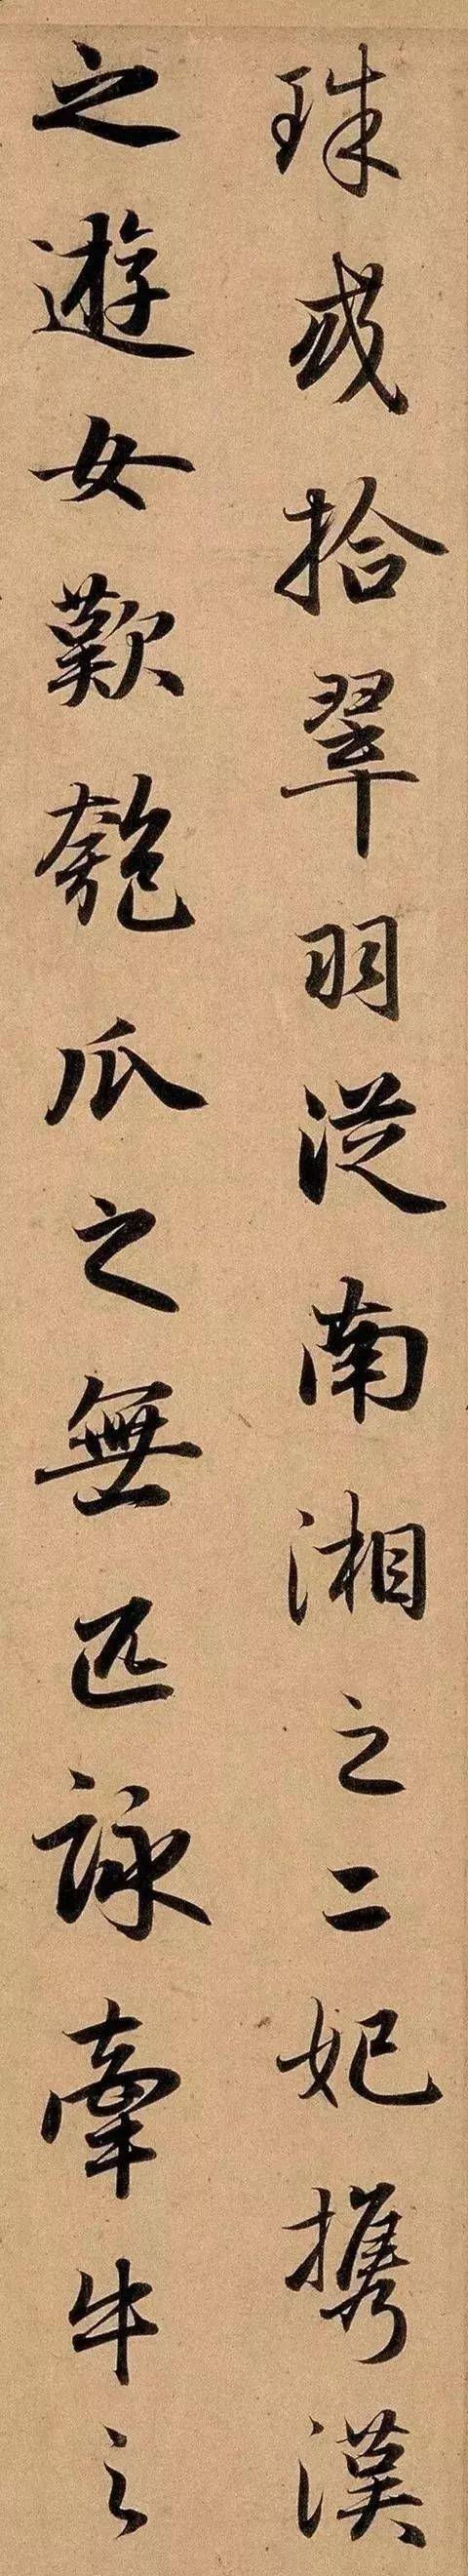 珠或拾翠羽從南湘之二妃攜漢
之遊女歎匏瓜之無匹詠牽牛之